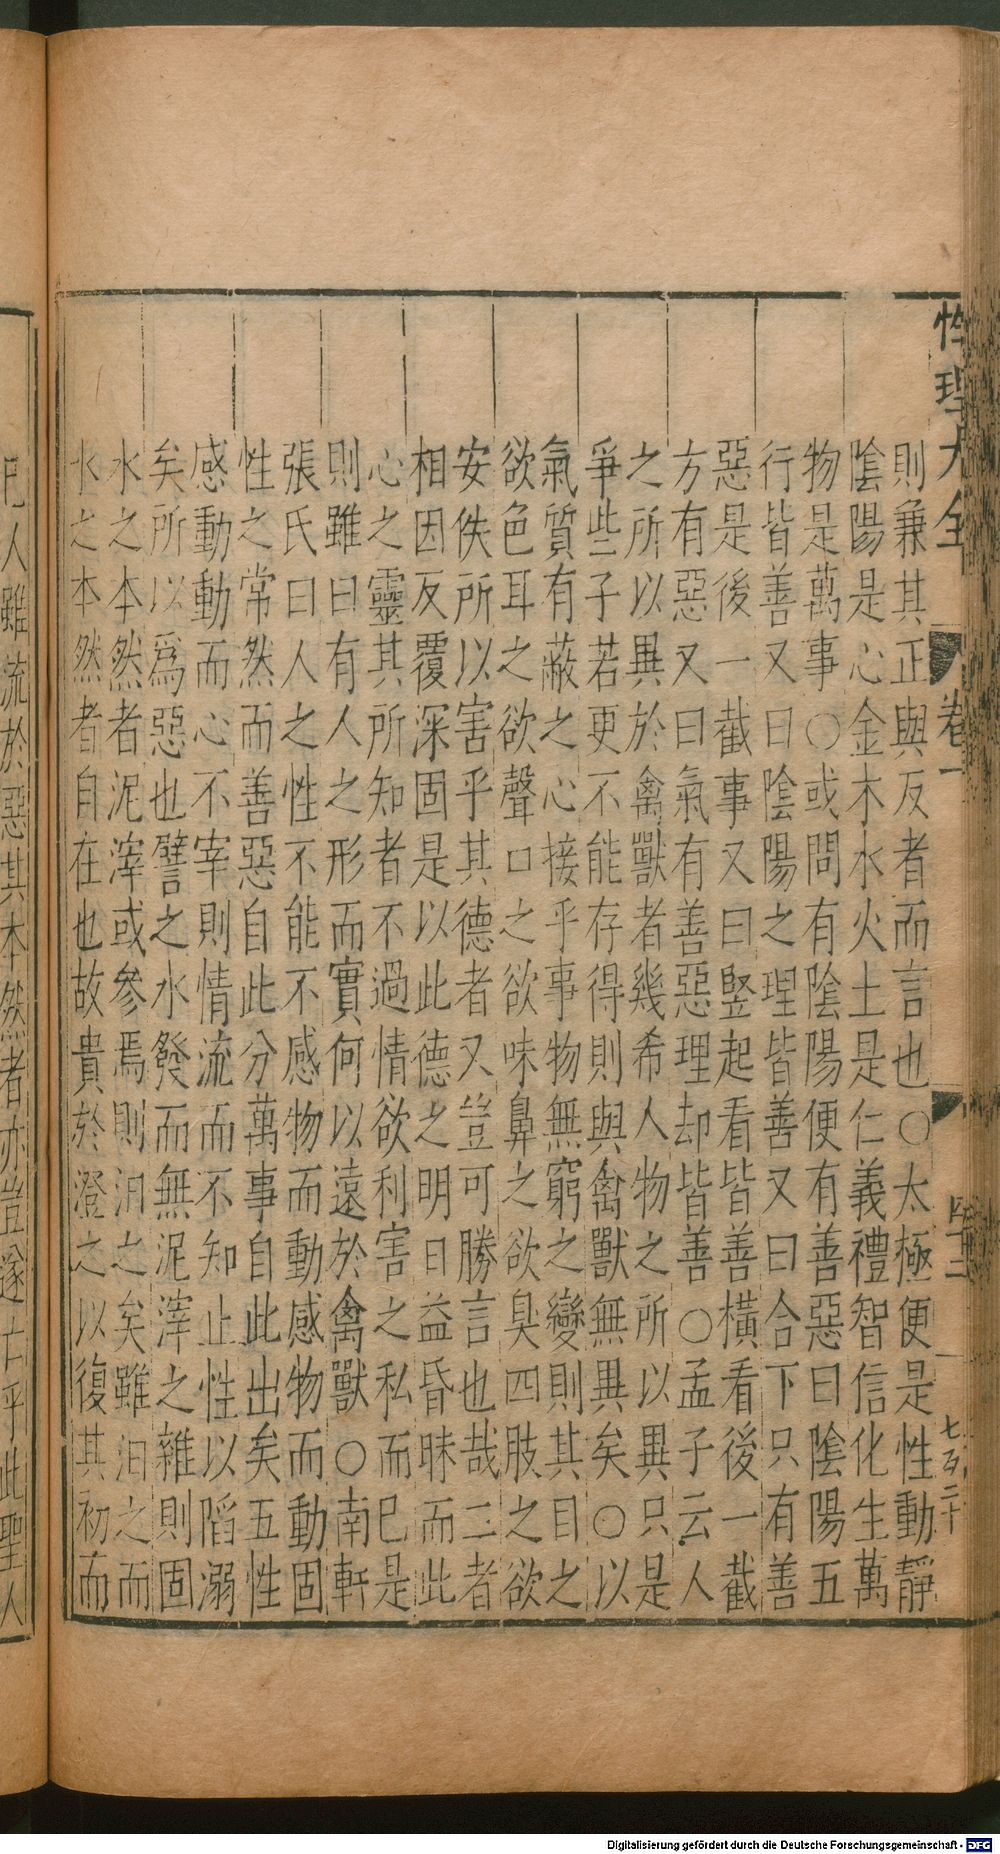 性理大全 卷一 四十二 
則兼其正與反者而言也○太極便是性動靜
陰陽是心金木水火土是仁義禮智信化生萬
物是萬事○或問有陰陽便有善惡曰陰陽五
行皆善又曰陰陽之理皆善又曰合下只有善
惡是後一截事又曰竪起看皆善橫看後一截
方有惡又曰氣有善惡理却皆善○孟子云人
之所以異於禽獸者幾希人物之所以異只是
爭些子若更不能存得則與禽獸無異矣○以
氣質有蔽之心接乎事物無窮之變則其目之
欲色耳之欲聲口之欲味鼻之欲臭四肢之欲
安佚所以害乎其德者又豈可勝言也哉二者
相因反覆深固是以此德之明日益昏昧而此
心之靈其所知者不過情欲利害之私而已是
則雖曰有人之形而實何以遠於禽獸○南軒
張氏曰人之性不能不感物而動感物而動固
性之常然而善惡自此分萬事自此出矣五性
感動動而心不宰則情流而不知止性以陷溺
矣所以爲惡也譬之水發而無泥滓之雜則固
水之本然者泥滓或參焉則汩之矣雖汩之而
水之本然者自在也故貴於澄之以復其初而
已人雖流於惡其本然者亦豈遂亡乎此聖人
Digitalisierung gefördert durch die Deutsche Forschungsgemeinschaft - DFG